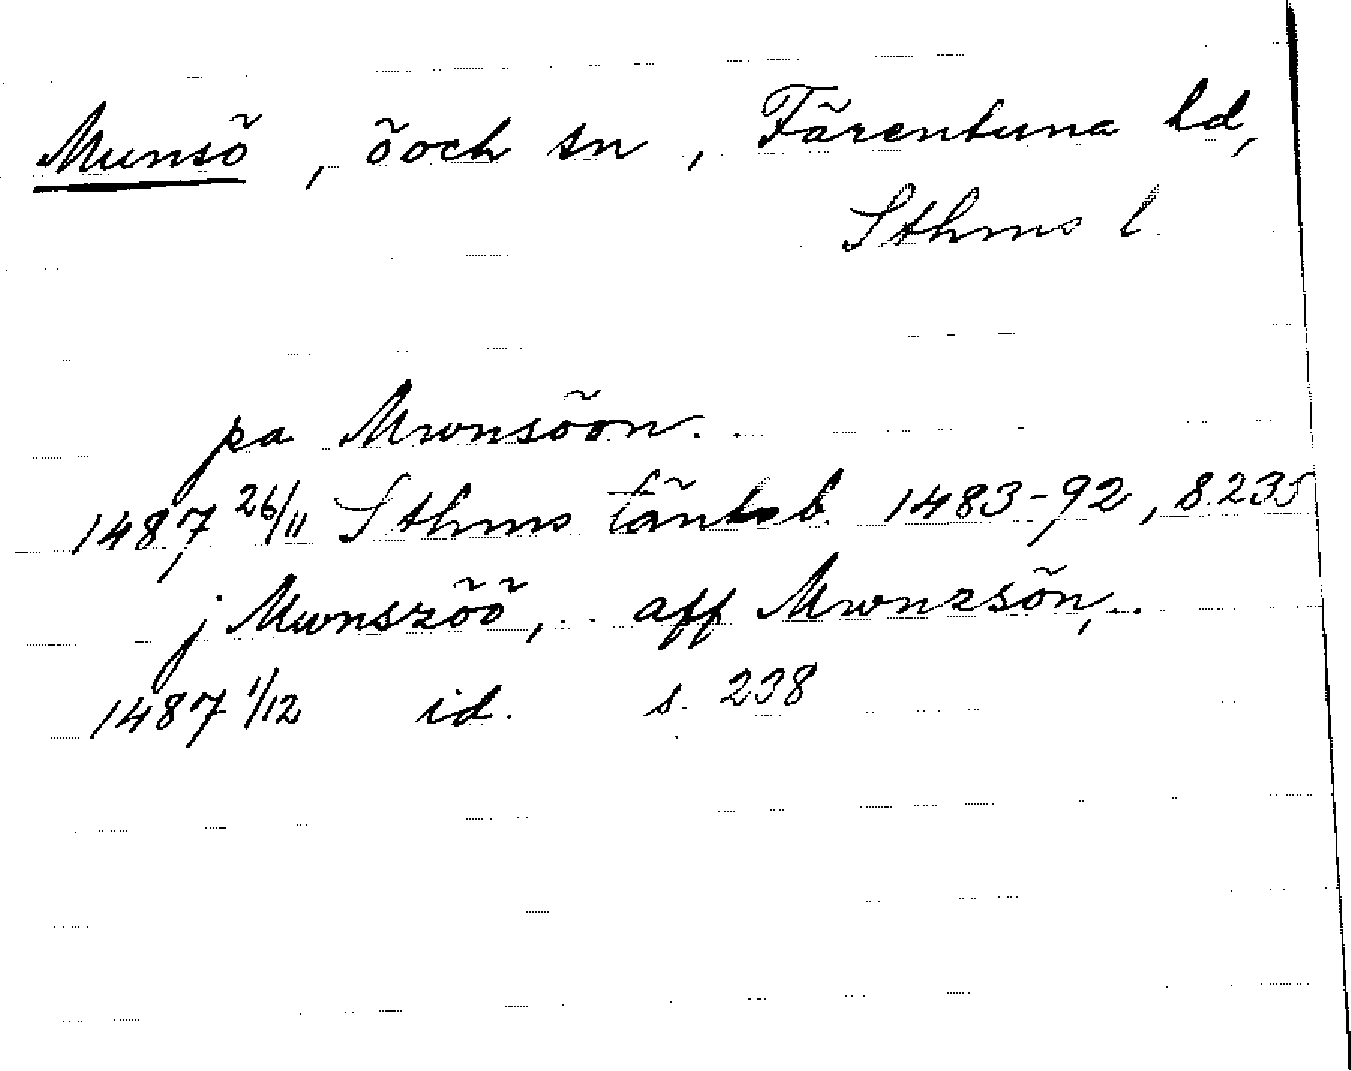 Munsö, ö och sn, Färentuna hd,
Sthms l
pa Mwnsöon..
1487 26/11 Sthms tänkeb 1483-92, s. 235
j Mwnszöö,.. aff Mwnzsön,..
1487 1/12 id. s. 238